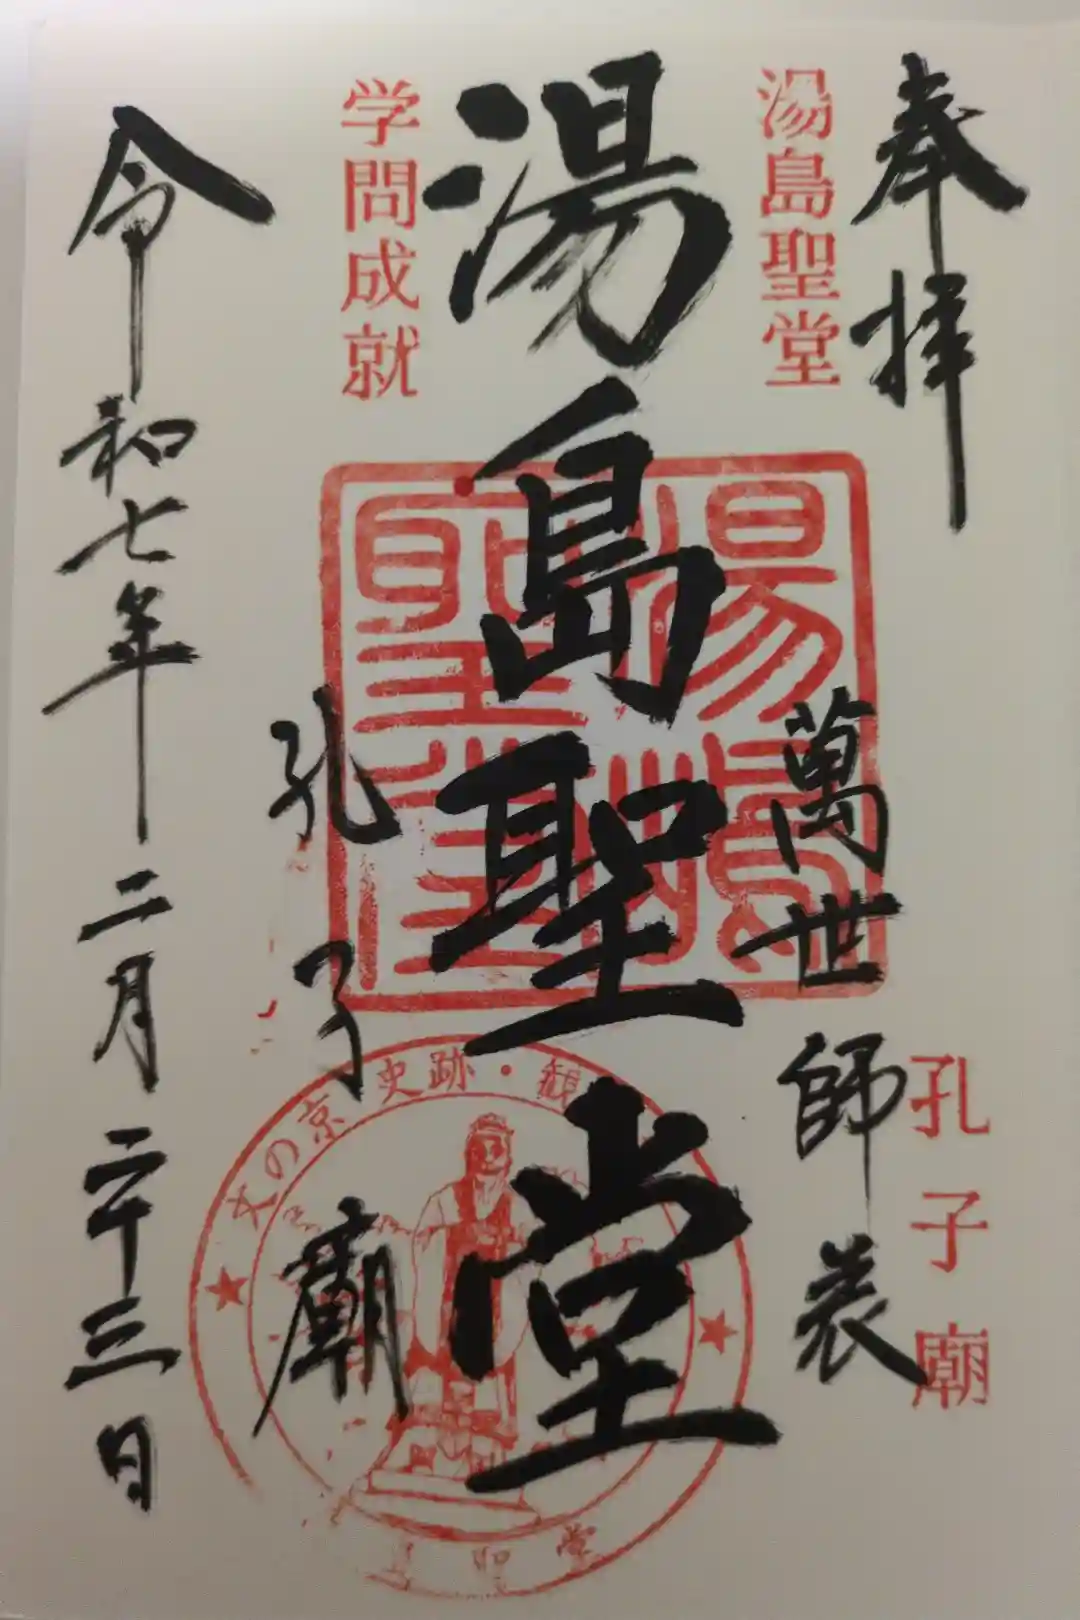 奉拝
湯島聖堂
孔子廟
萬世師表
湯島聖堂
湯島聖堂
学問成就
孔子廟
令和七年二月二十三日
文の京 史跡・観
島聖堂